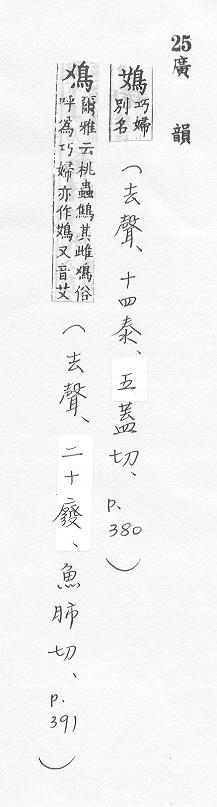 25 廣韻
鴱 巧婦別名 （去聲、十四泰、五蓋切、p.380）
鳼 爾雅云桃蟲鷦其雌鴱俗呼為巧婦亦作鴱又音艾 （去聲、二十廢、魚肺切、p.391）